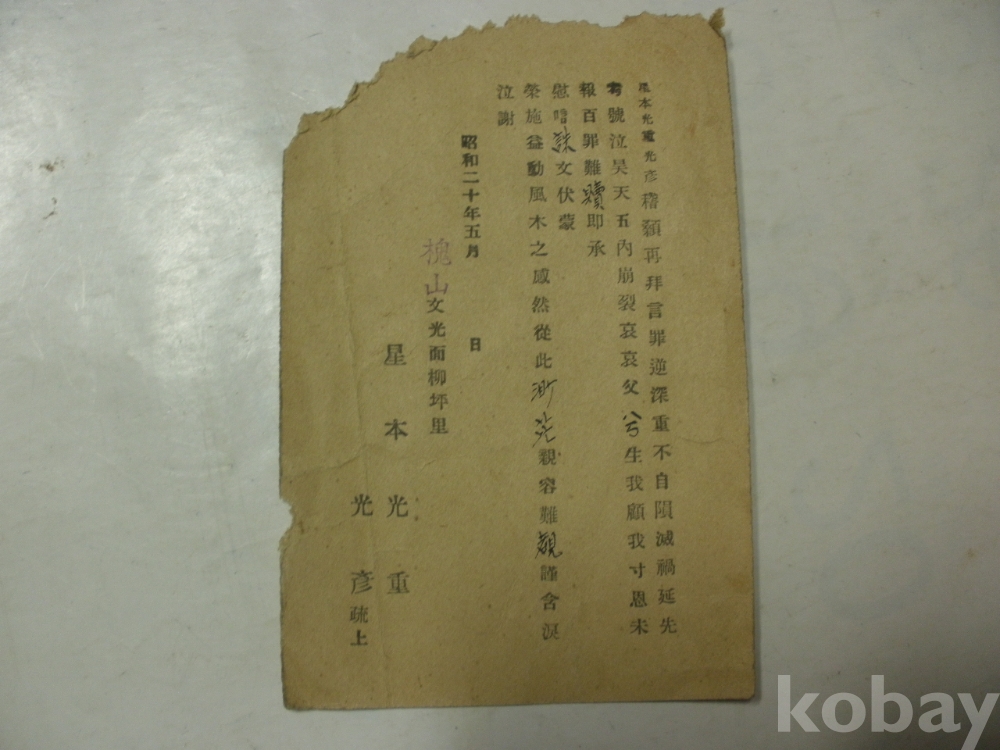 星本光重光彦稽顙再拜言罪逆深重不自隕滅禍延先
考號泣昊天五內崩裂哀哀父兮生我顧我寸恩未
報百罪難贖即承
慰唁誄文伏蒙
榮施益動風木之感然從此渺茫親容難覩謹含淚
泣謝
昭和二十年五月 日
槐山文光面柳坪里
星本光重
光彦 疏上
kobay